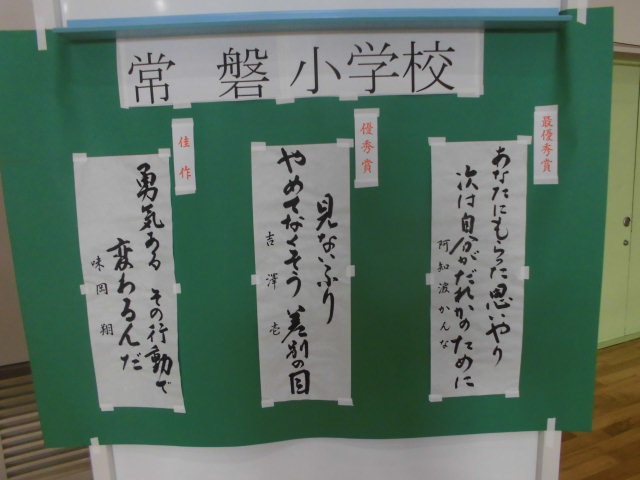 常磐小学校
最優秀賞
あなたにもらった思いやり
次は自分がだれかのために
阿知波かんな
優秀賞
見ないふり
やめてなくそう差別の目
吉澤壱
佳作
勇気ある その行動で
変わるんだ
味岡翔